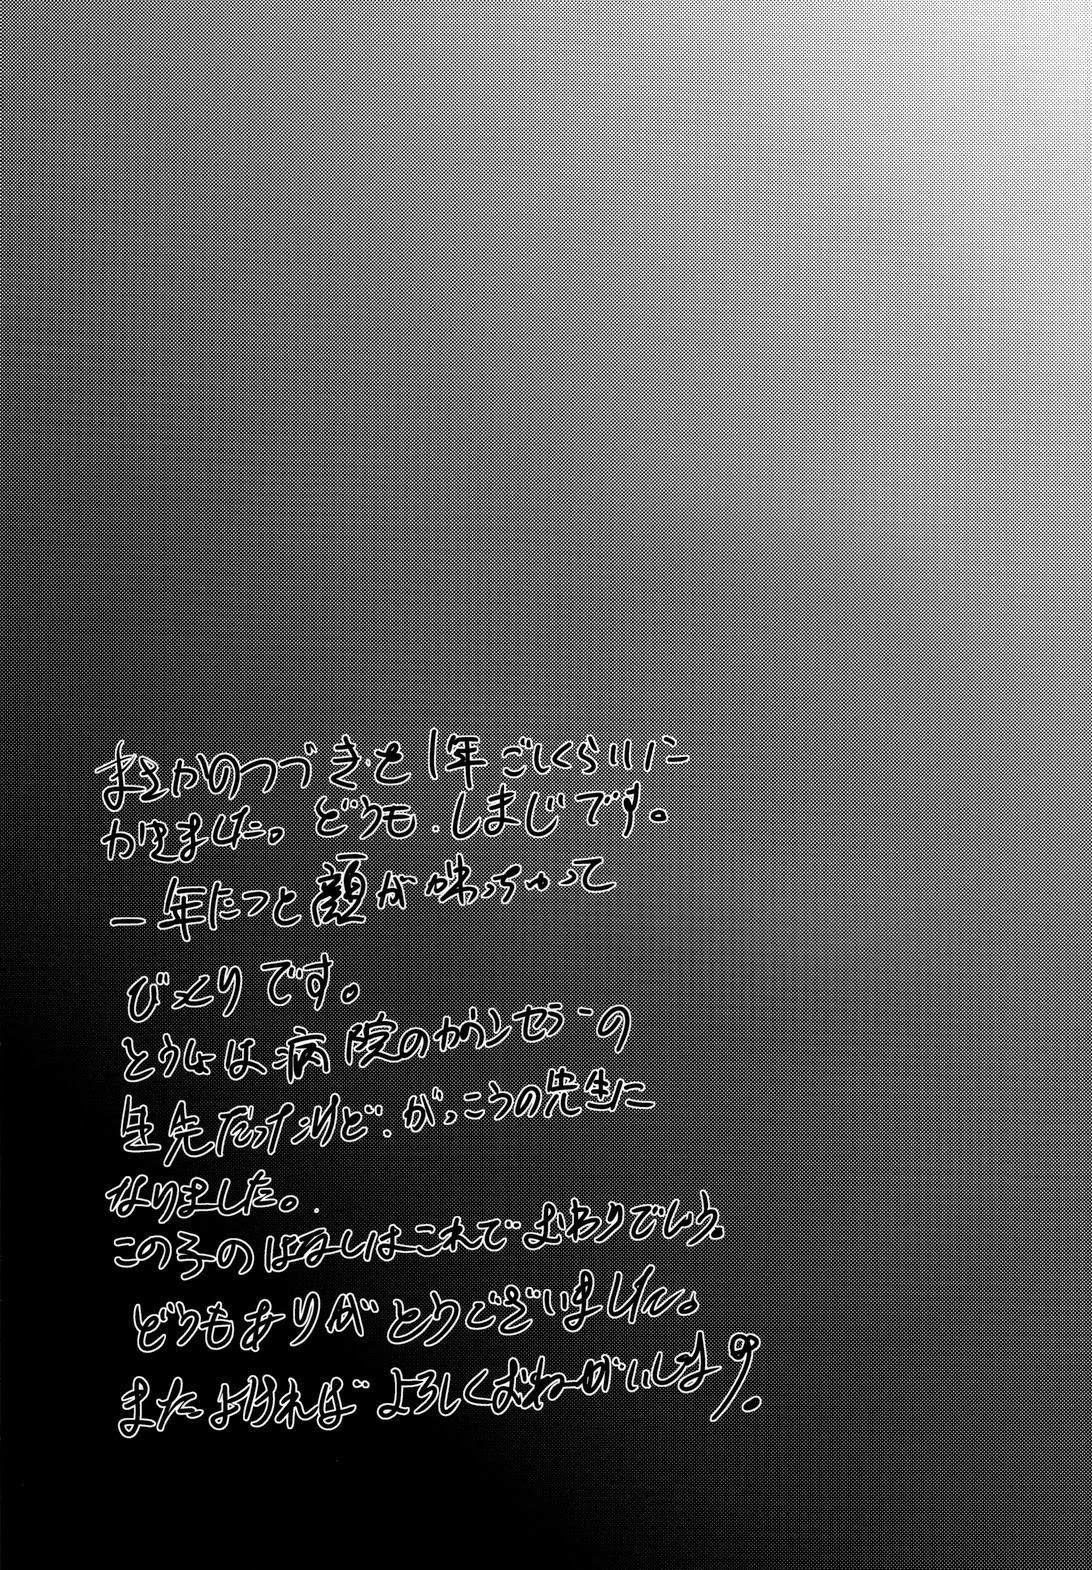 まさかのつづきを1年ごしくらいに
かきました。どうも.しまじです。
一年たつと顔が変わっちゃって
びっくりです。
とうしょは病院のカウンセラーの
先生だったけど.がっこうの先生に
なりました。
この子のはなしはこれでおわりでしょう。
どうもありがとうございました。
またよければよろしくおねがいします。